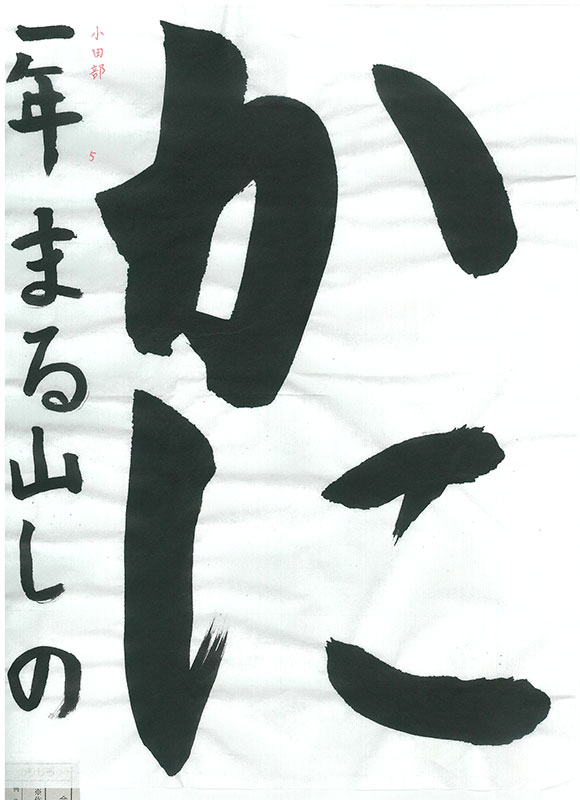 かに
一年 まる山しの
小田部 5